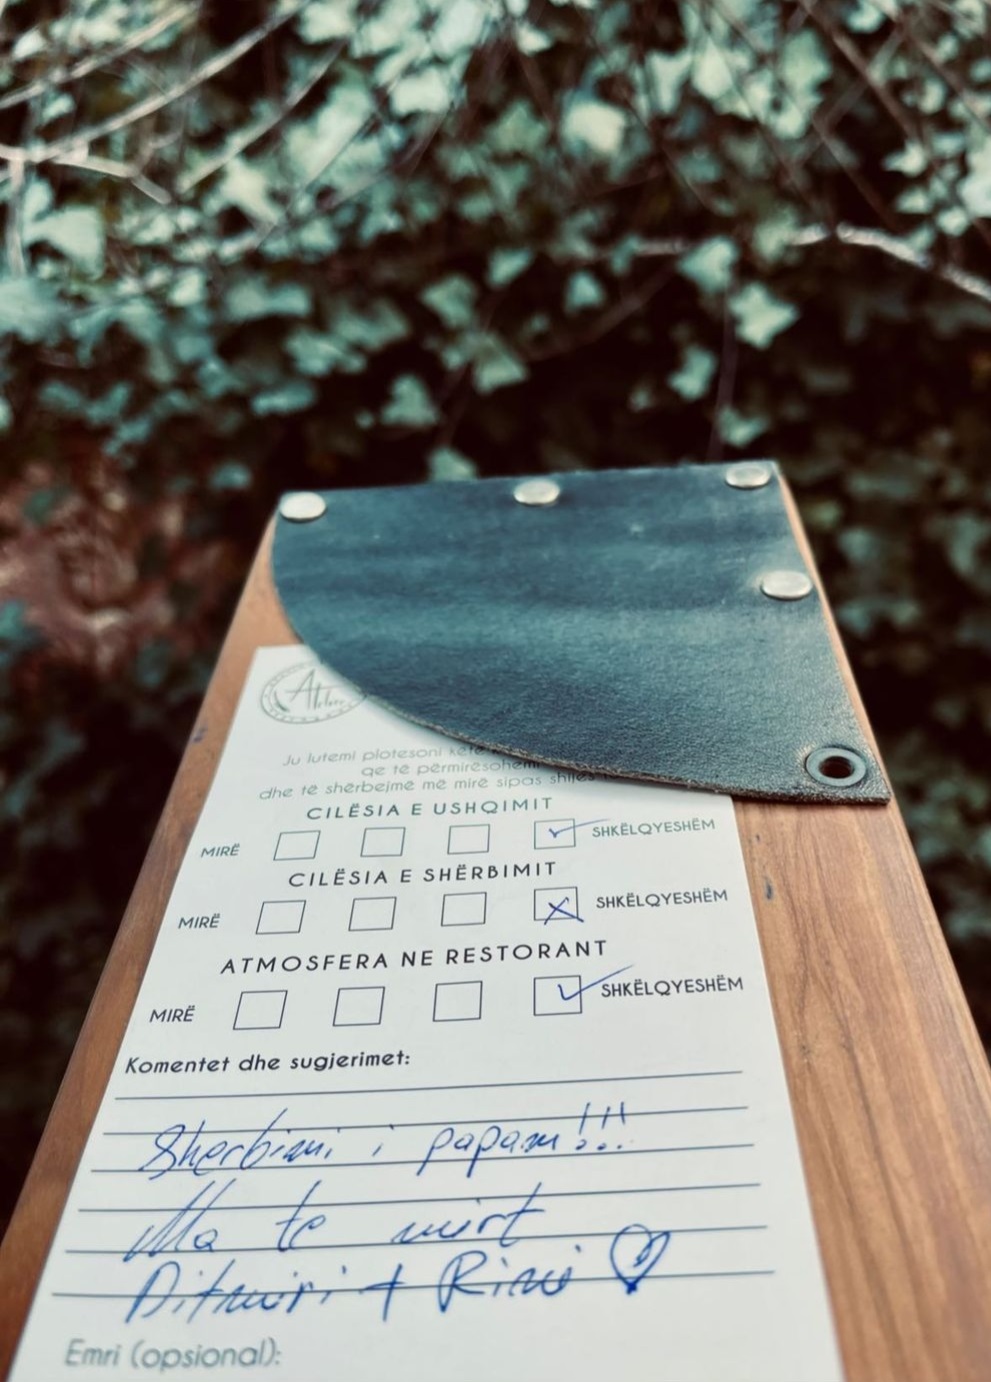 Atelier
Ju lutemi plotesoni kete
qe të përmirësohemi
dhe të shërbejmë më mirë sipas shijes
CILËSIA E USHQIMIT
MIRË SHKËLQYESHËM
CILËSIA E SHËRBIMIT
MIRË SHKËLQYESHËM
ATMOSFERA NE RESTORANT
MIRË SHKËLQYESHËM
Komentet dhe sugjerimet:
Sherbimi i papam!!!
Ma te mirt
Ditmiri + Rina
Emri (opsional):